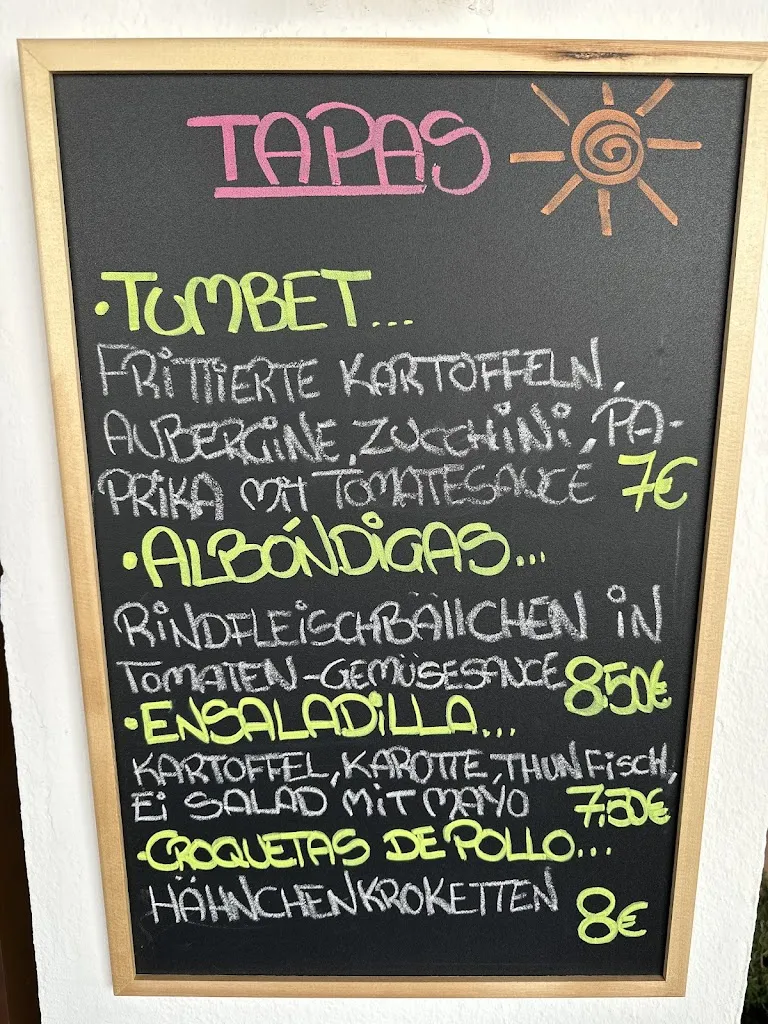 TAPAS
·TUMBET...
FRITTIERTE KARTOFFELN,
AUBERGINE, ZUCCHINI, PA-
PRIKA MIT TOMATESAUCE 7€
·ALBÓNDIGAS...
RINDFLEISCHBÄLLCHEN IN
TOMATEN-GEMÜSESAUCE 8,50€
·ENSALADILLA...
KARTOFFEL, KAROTTE, THUNFISCH,
EI SALAD MIT MAYO 7,50€
·CROQUETAS DE POLLO...
HÄHNCHENKROKETTEN 8€